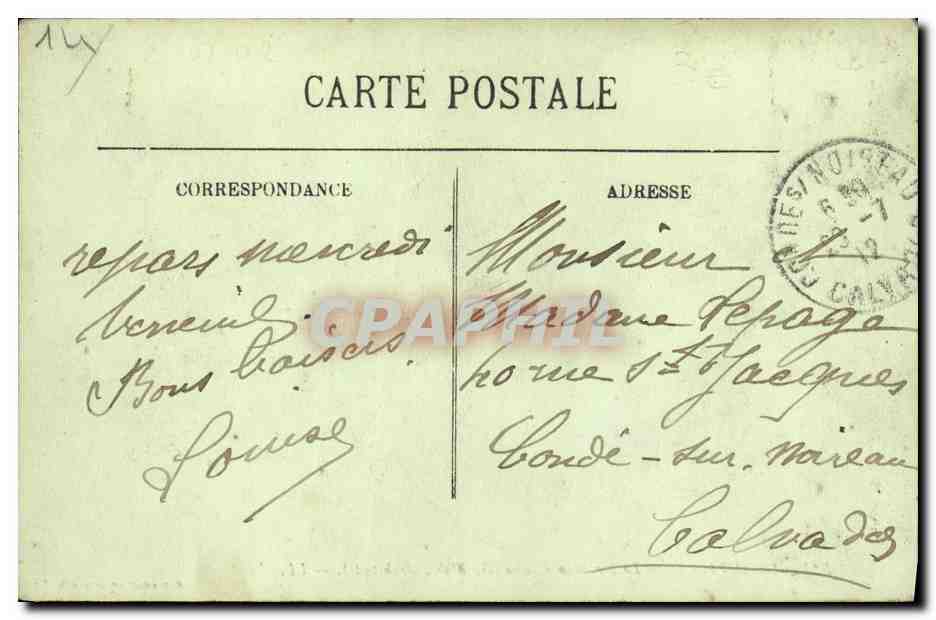 14
CARTE POSTALE
CORRESPONDANCE
repars mercredi
Verneuil
Bons baisers
Louise
ADRESSE
Monsieur
Madame Lepage
40 rue St Jacques
Condé-sur-Noireau
Calvados
NOIREAU
CALV
CPAPHIL